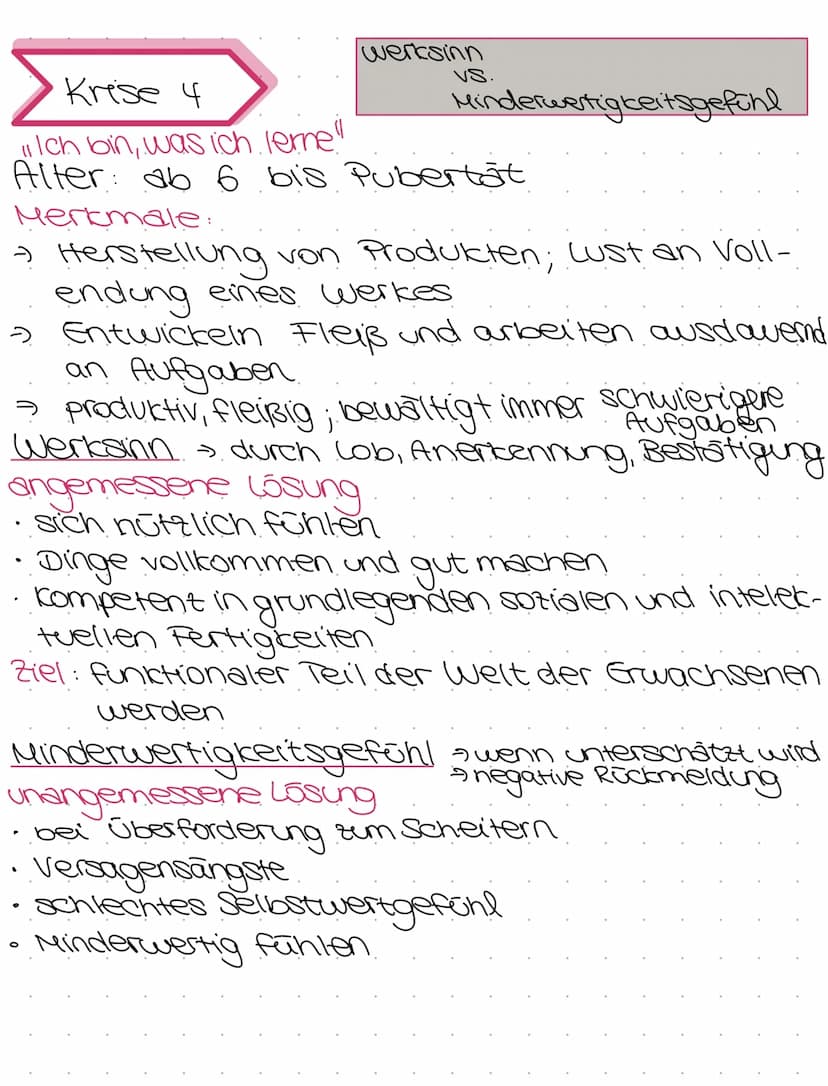 Krise 4
Werksinn
vs.
Minderwertigkeitsgefühl
„Ich bin, was ich lerne"
Alter: ab 6 bis Pubertät
Merkmale:
→ Herstellung von Produkten; Lust an Voll-
endung eines Werkes
→ Entwickeln Fleiß und arbeiten ausdauernd
an Aufgaben
→ produktiv, fleißig; bewältigt immer schwierigere
Aufgaben
Werksinn → durch Lob, Anerkennung, Bestätigung
angemessene Lösung
· sich nützlich fühlen
· Dinge vollkommen und gut machen
· Kompetent in grundlegenden sozialen und intelek-
tuellen Fertigkeiten
Ziel: funktionaler Teil der Welt der Erwachsenen
werden
Minderwertigkeitsgefühl → wenn unterschätzt wird
→ negative Rückmeldung
unangemessene Lösung
· bei Überforderung zum Scheitern
· Versagensängste
· schlechtes Selbstwertgefühl
· Minderwertig fühlen